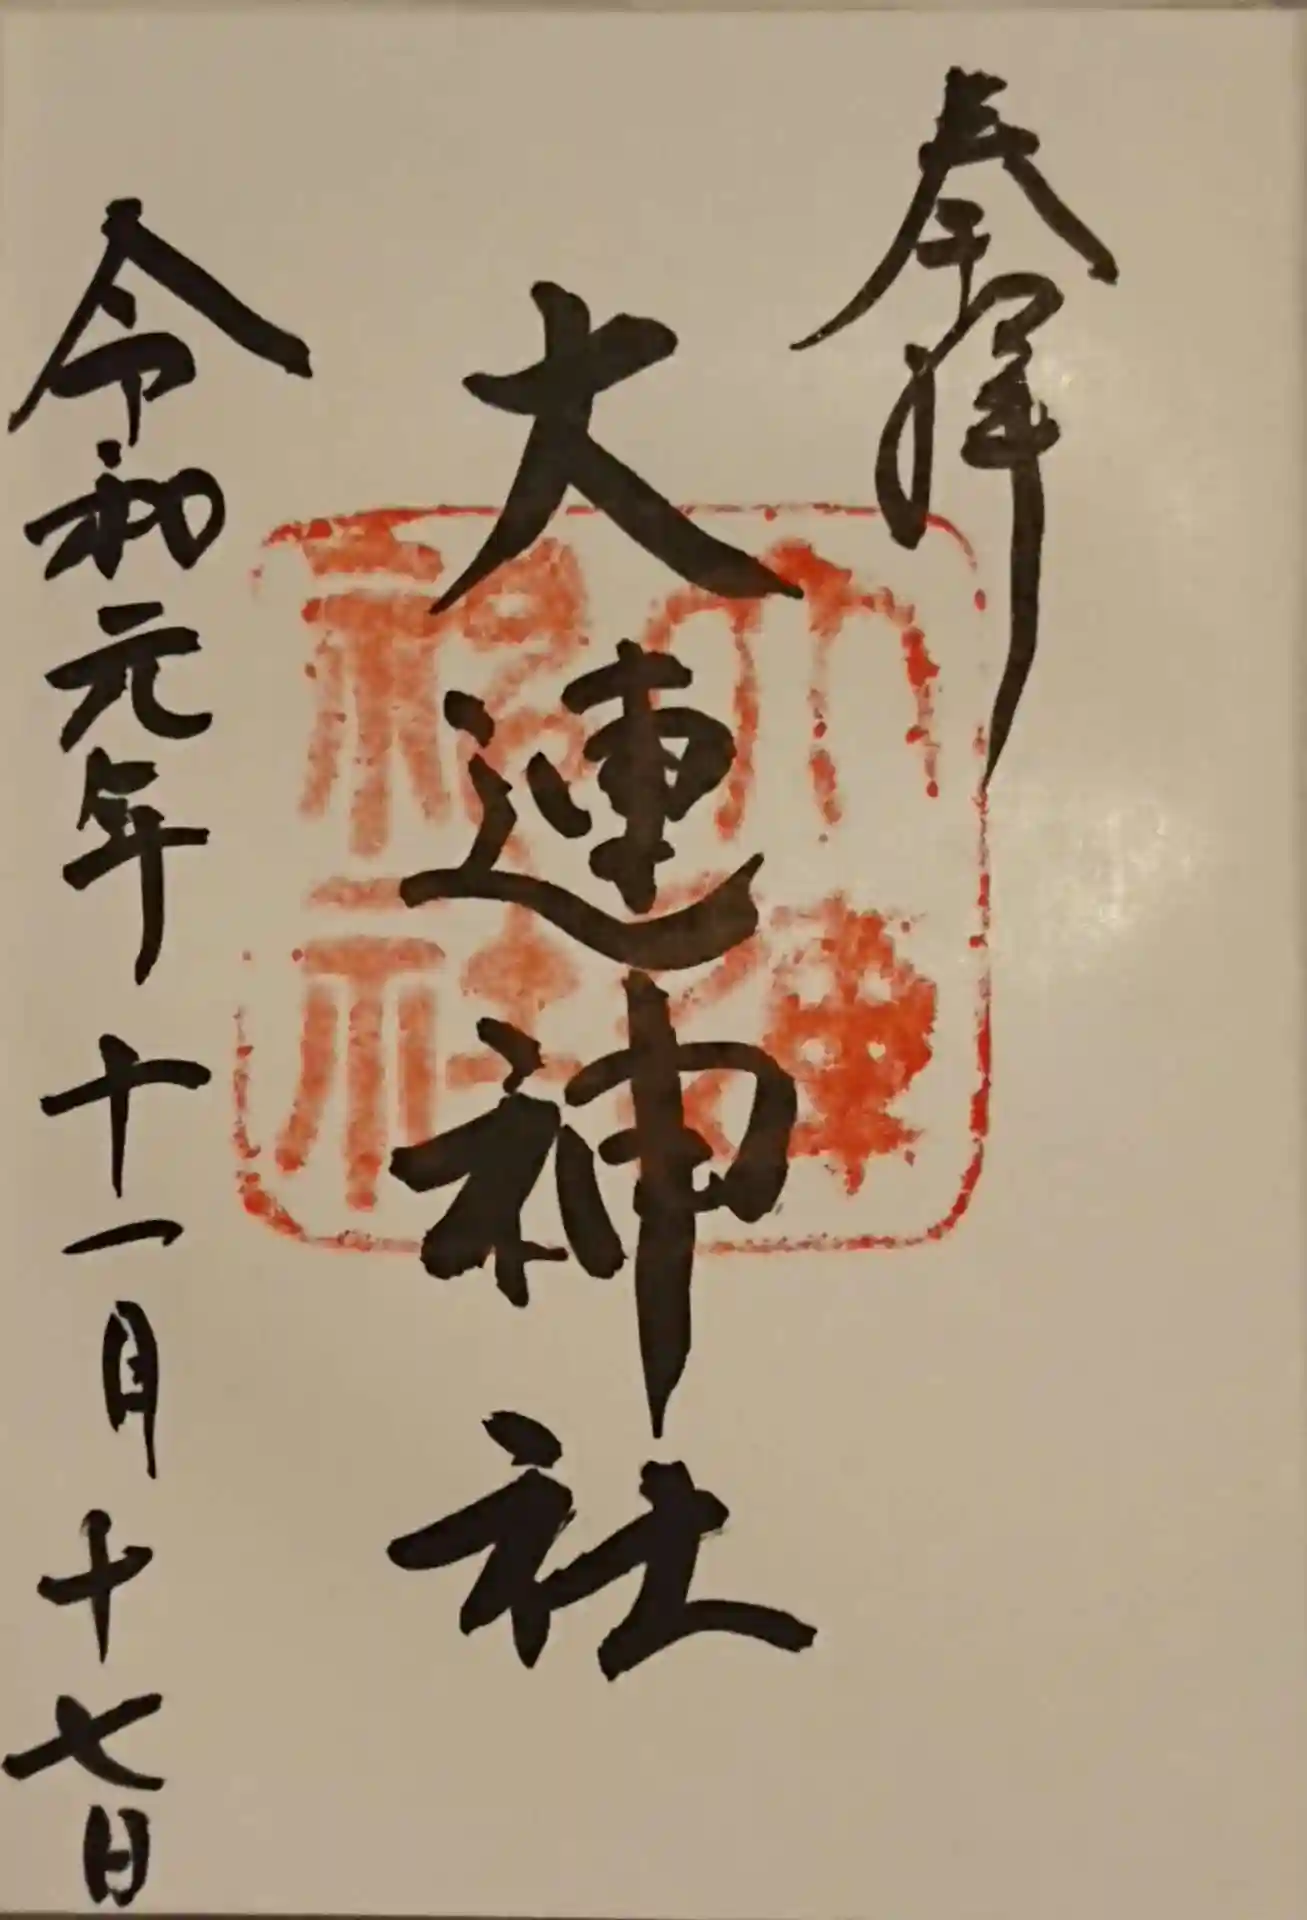 奉拝
大連神社
令和元年十一月十七日
大連神社